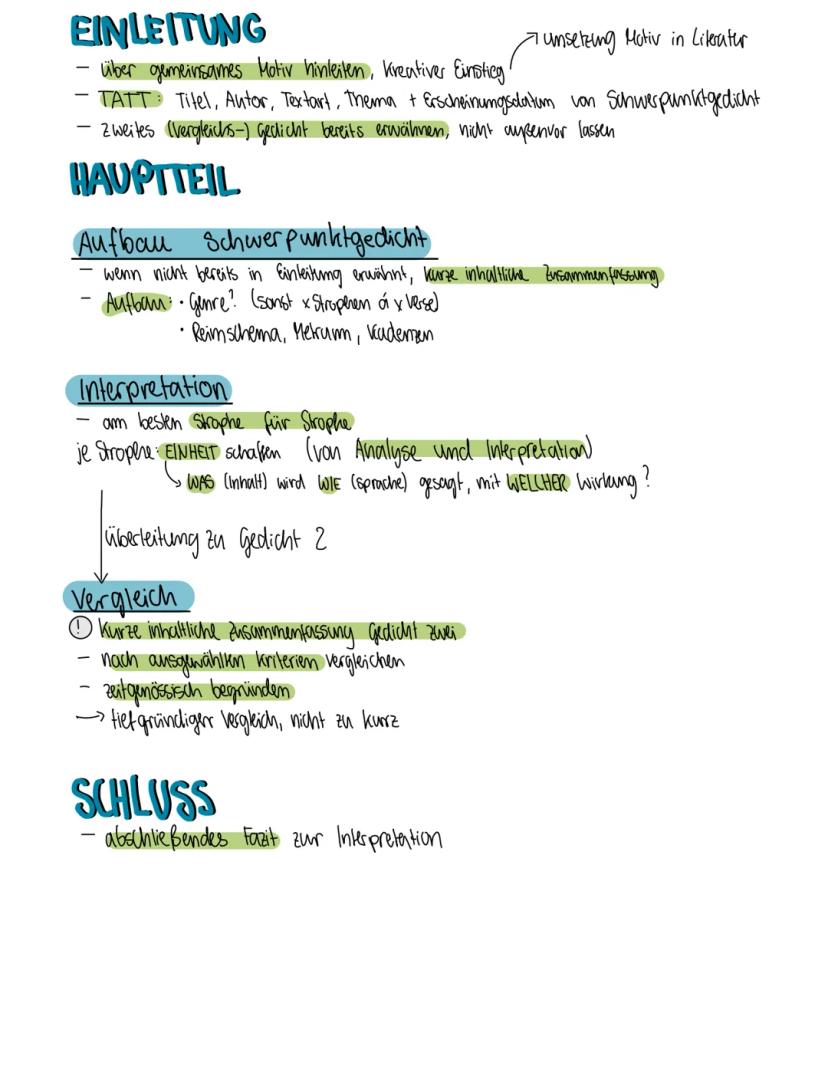 EINLEITUNG
→ Umsetzung Motiv in Literatur
- über gemeinsames Motiv hinleiten, kreativer Einstieg
- TATT: Titel, Autor, Textart, Thema + Erscheinungsdatum von Schwerpunktgedicht
- zweites (Vergleichs-) Gedicht bereits erwähnen, nicht außenvor lassen
HAUPTTEIL
Aufbau Schwerpunktgedicht
- wenn nicht bereits in Einleitung erwähnt, kurze inhaltliche Zusammenfassung
- Aufbau: • Genre? (sonst x Strophen á x Verse)
• Reimschema, Metrum, Kadenzen
Interpretation
- am besten Strophe für Strophe
je Strophe: EINHEIT schaffen (von Analyse und Interpretation)
↳ WAS (Inhalt) wird WIE (Sprache) gesagt, mit WELCHER Wirkung?
Überleitung zu Gedicht 2
Vergleich
! kurze inhaltliche Zusammenfassung Gedicht zwei
- nach ausgewählten Kriterien vergleichen
- zeitgenössisch begründen
→ tiefgründiger Vergleich, nicht zu kurz
SCHLUSS
- abschließendes Fazit zur Interpretation